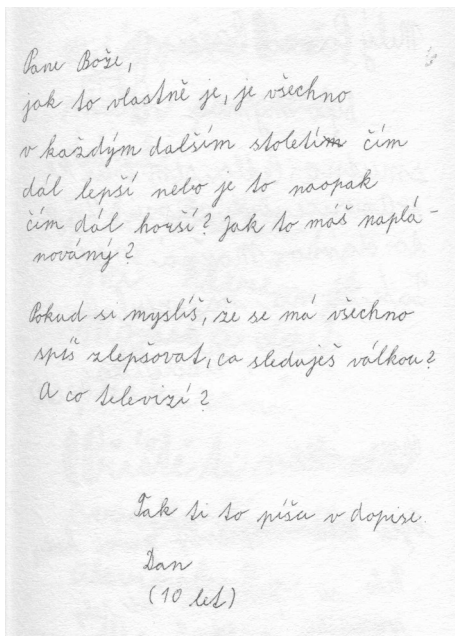 Pane Bože,
jak to vlastně je, je všechno
v každým dalším století čím
dál lepší nebo je to naopak
čím dál horší? Jak to máš naplá-
nováný?
Pokud si myslíš, že se má všechno
spíš zlepšovat, co sleduješ válkou?
A co televizí?
Tak ti to píšu v dopise.
Dan
(10 let)